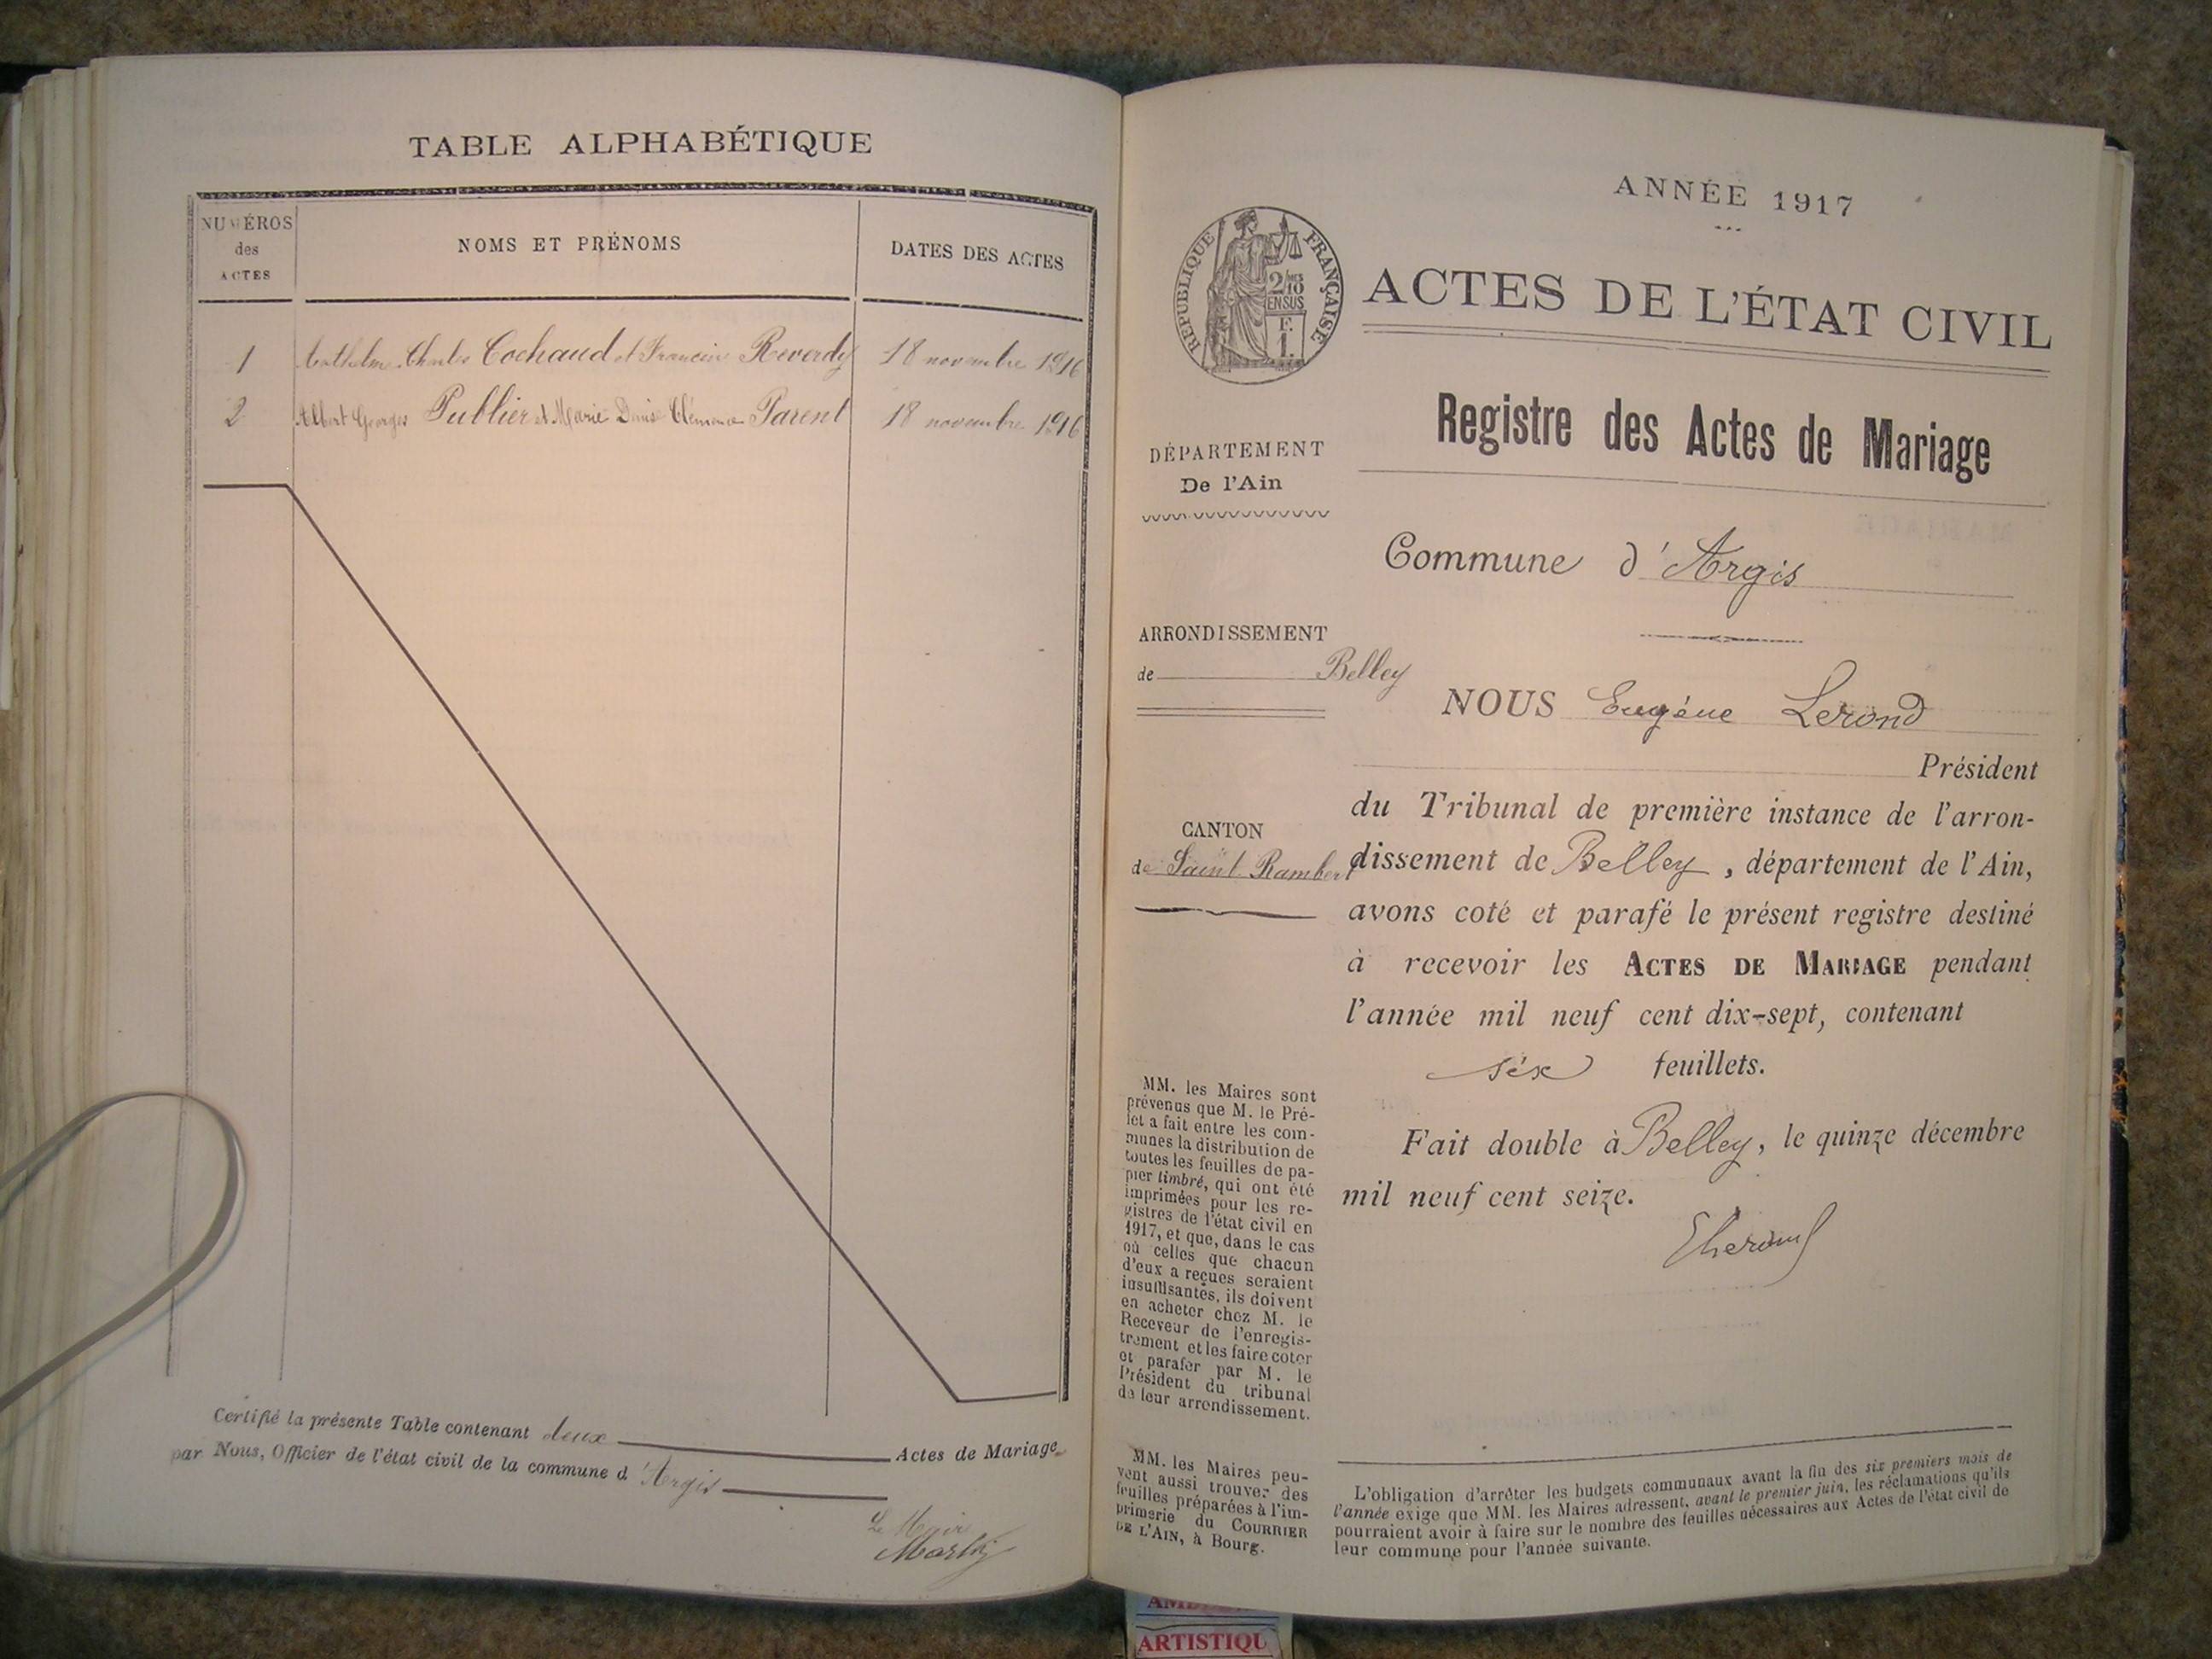 TABLE ALPHABÉTIQUE
NUMÉROS
des
ACTES
NOMS ET PRÉNOMS
DATES DES ACTES
1 Anthelme Charles Cochaud et Francine Reverdy 18 novembre 1916
2 Albert Georges Publier et Marie Denise Clémence Parent 18 novembre 1916
Certifié la présente Table contenant deux Actes de Mariage
par Nous, Officier de l'état civil de la commune d'Argis
Le Maire
ANNÉE 1917
RÉPUBLIQUE FRANÇAISE
2/10
EN SUS
F.
1.
ACTES DE L'ÉTAT CIVIL
Registre des Actes de Mariage
DÉPARTEMENT
De l'Ain
Commune d'Argis
ARRONDISSEMENT
de Belley
NOUS Eugène Lerond
Président
du Tribunal de première instance de l'arron-
dissement de Belley, département de l'Ain,
avons coté et parafé le présent registre destiné
à recevoir les ACTES DE MARIAGE pendant
l'année mil neuf cent dix-sept, contenant
six feuillets.
Fait double à Belley, le quinze décembre
mil neuf cent seize.
CANTON
de Saint Rambert
MM. les Maires sont
prévenus que M. le Pré-
fet a fait entre les com-
munes la distribution de
toutes les feuilles de pa-
pier timbré, qui ont été
imprimées pour les re-
gistres de l'état civil en
1917, et que, dans le cas
où celles que chacun
d'eux a reçues seraient
insuffisantes, ils doivent
en acheter chez M. le
Receveur de l'enregis-
trement et les faire coter
et parafer par M. le
Président du tribunal
de leur arrondissement.
MM. les Maires peu-
vent aussi trouver des
feuilles préparées à l'im-
primerie du COURRIER
DE L'AIN, à Bourg.
L'obligation d'arrêter les budgets communaux avant la fin des six premiers mois de
l'année exige que MM. les Maires adressent, avant le premier juin, les réclamations qu'ils
pourraient avoir à faire sur le nombre des feuilles nécessaires aux Actes de l'état civil de
leur commune pour l'année suivante.
ARTISTIQU